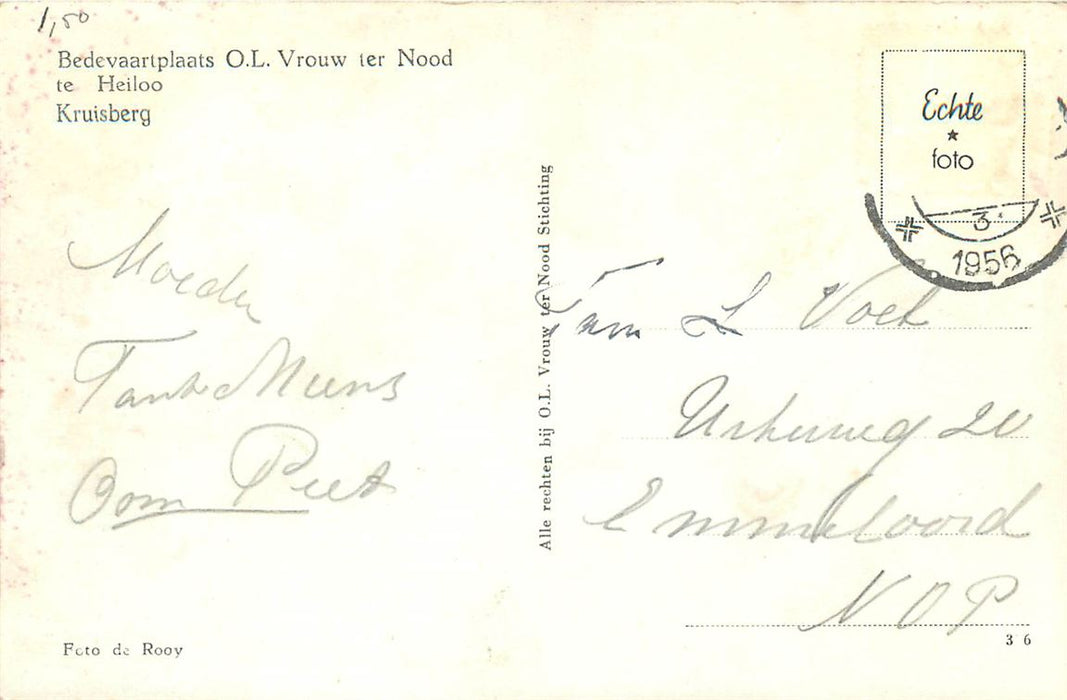 1,50
Bedevaartplaats O.L. Vrouw ter Nood
te Heiloo
Kruisberg
Echte
★
foto
3
1956
Alle rechten bij O.L. Vrouw ter Nood Stichting
Moeder
Tante Miens
Oom Piet
Fam L Voet
Urkerweg 20
Emmeloord
N O P
Foto de Rooy
36